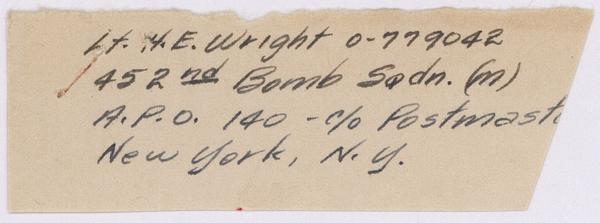 Lt. H. E. Wright O-779042
452nd Bomb Sqdn. (M)
A.P.O. 140 - c/o Postmast
New York, N.Y.